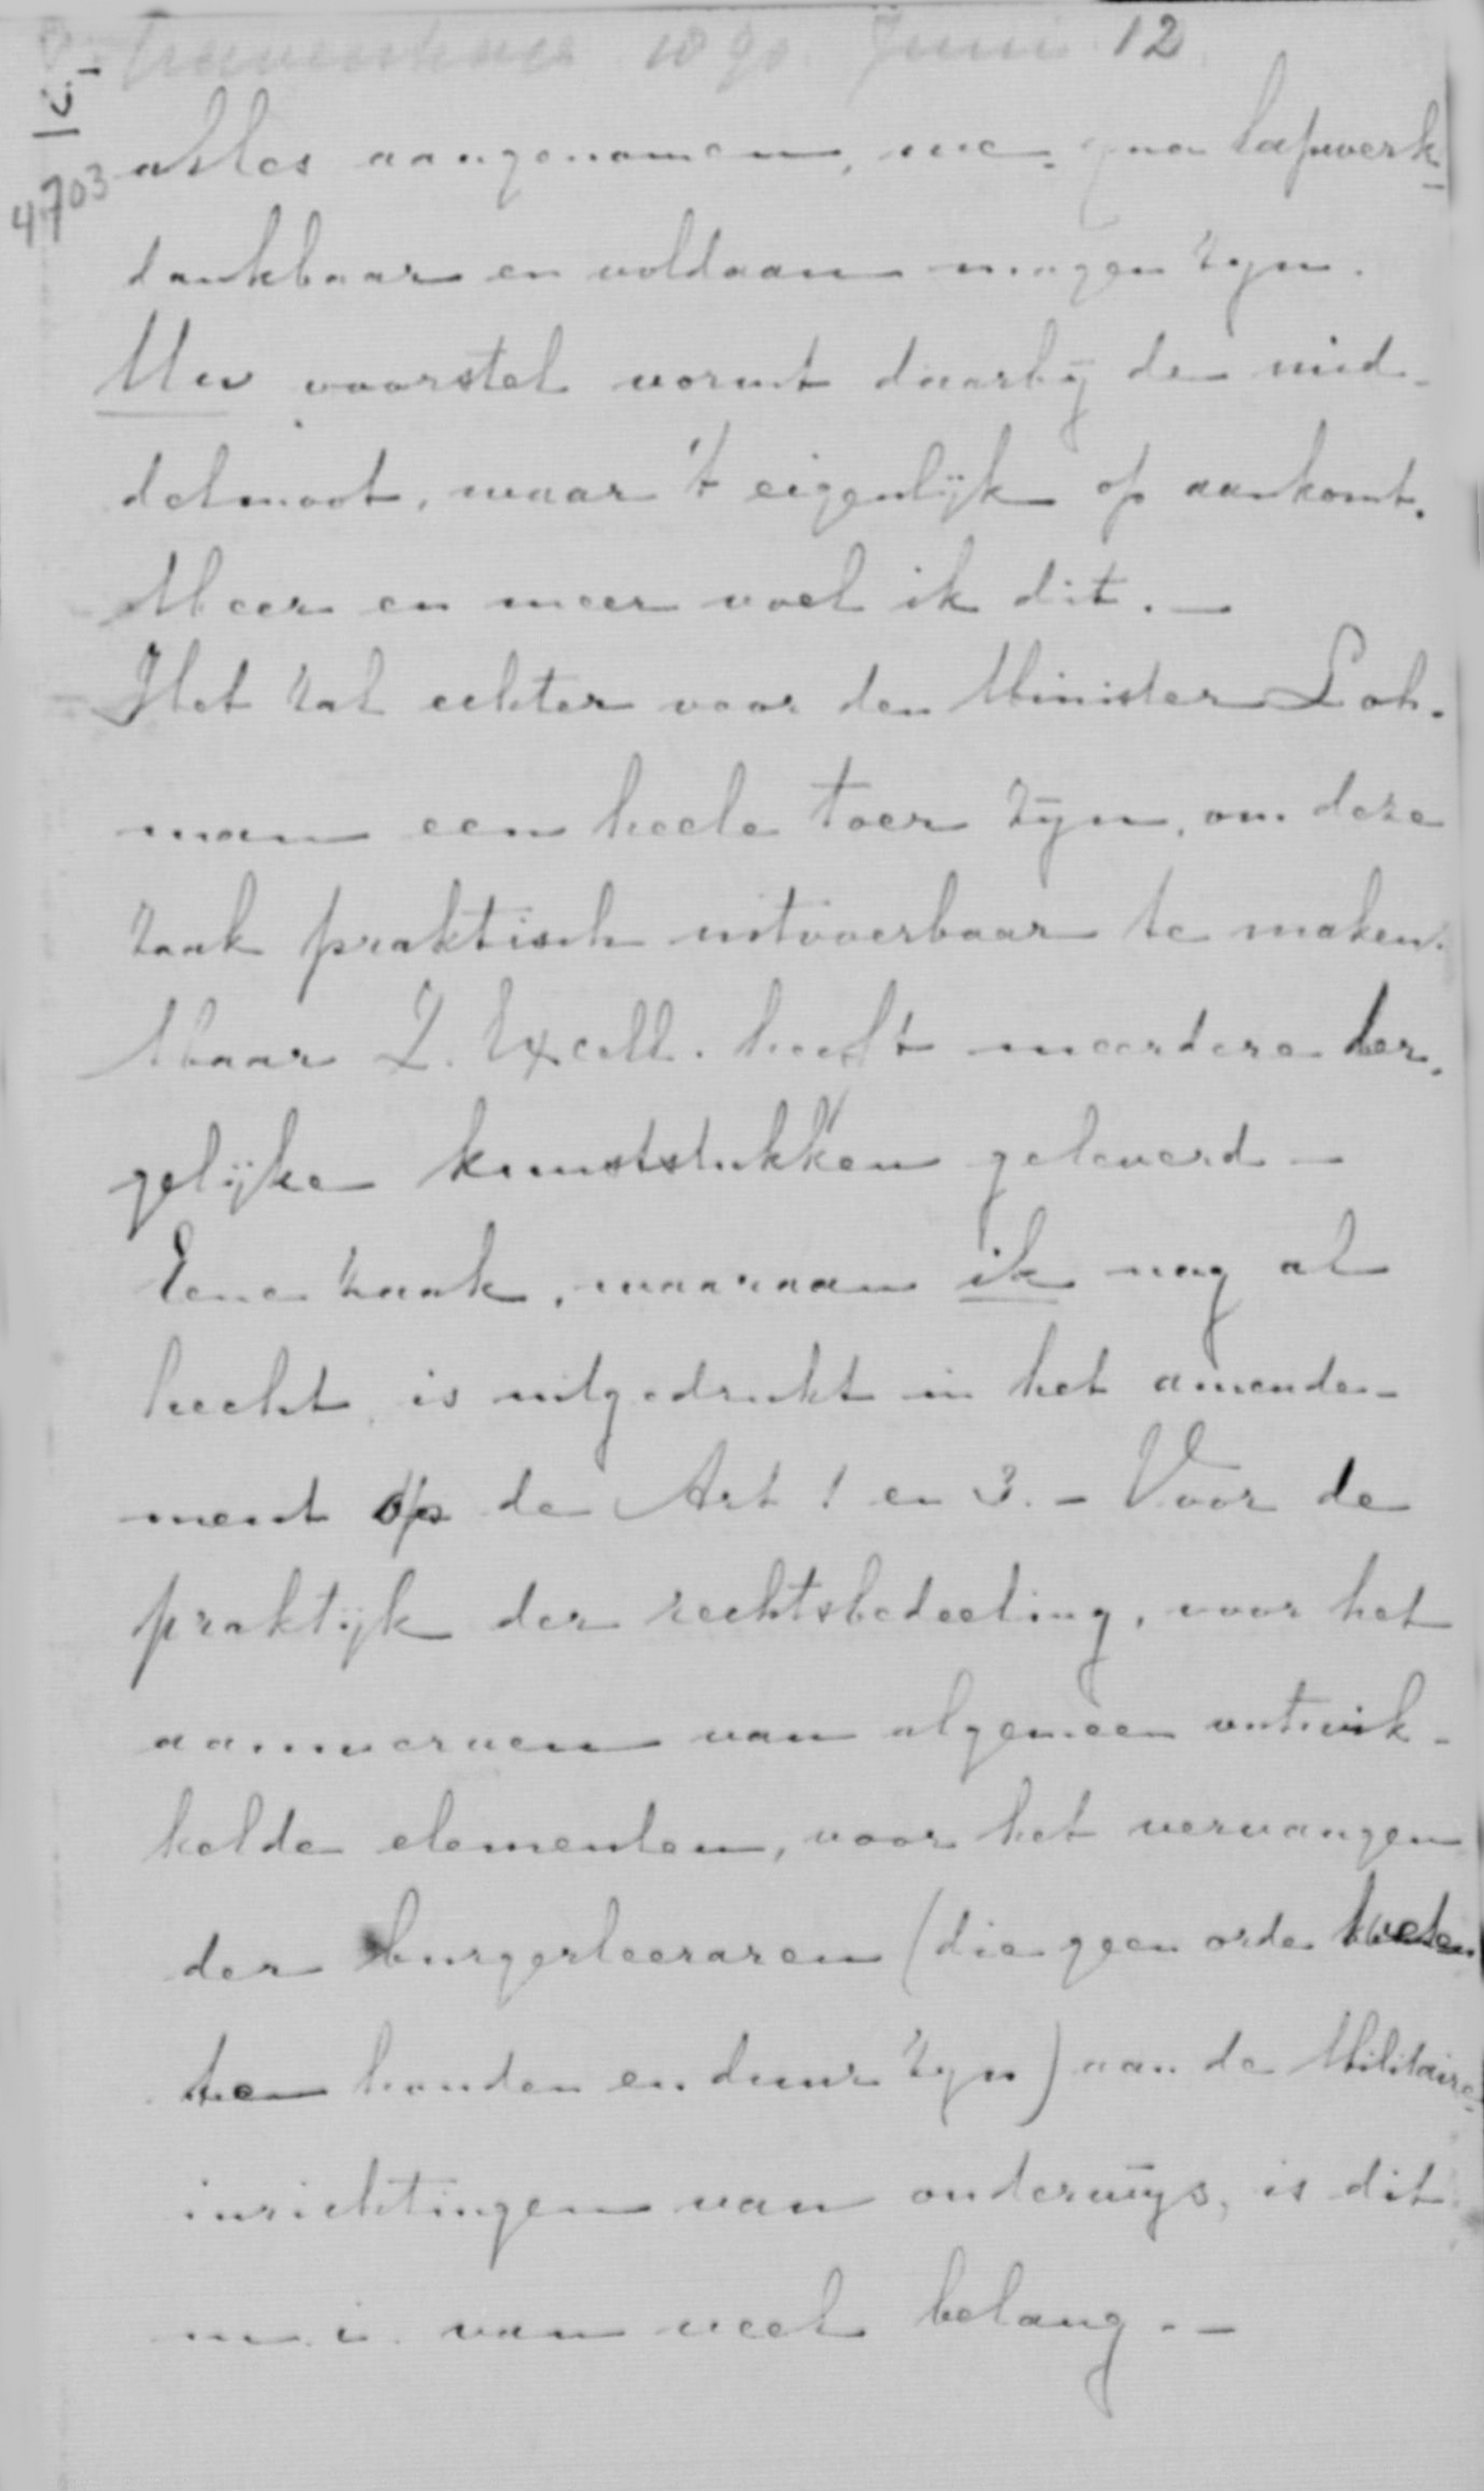 'sGravenhage 1890 Juni 12
4703
alles aangenomen, we qua lapwerk
dankbaar en voldaan mogen zyn.
Uw voorstel vormt daarbÿ de mid-
delmoot, waar 't eigenlÿk op aankomt.
Meer en meer voel ik dit. —
Het zal echter voor den Minister Loh-
man een heele toer zÿn, om deze
zaak praktisch uitvoerbaar te maken.
Maar Z. Excell. heeft meerdere der-
gelÿke kunststukken geleverd —
Eene zaak, waaraan ik nog al
hecht, is uitgedrukt in het amende-
ment op de Art 1 en 3. — Voor de
praktÿk der rechtsbedeeling, voor het
aanwerven van algemeen ontwik-
kelde elementen, voor het vervangen
der burgerleeraren (die geen orde weten
te houden en duur zyn) aan de Militaire
inrichtingen van onderwÿs, is dit
m. i. van veel belang. —